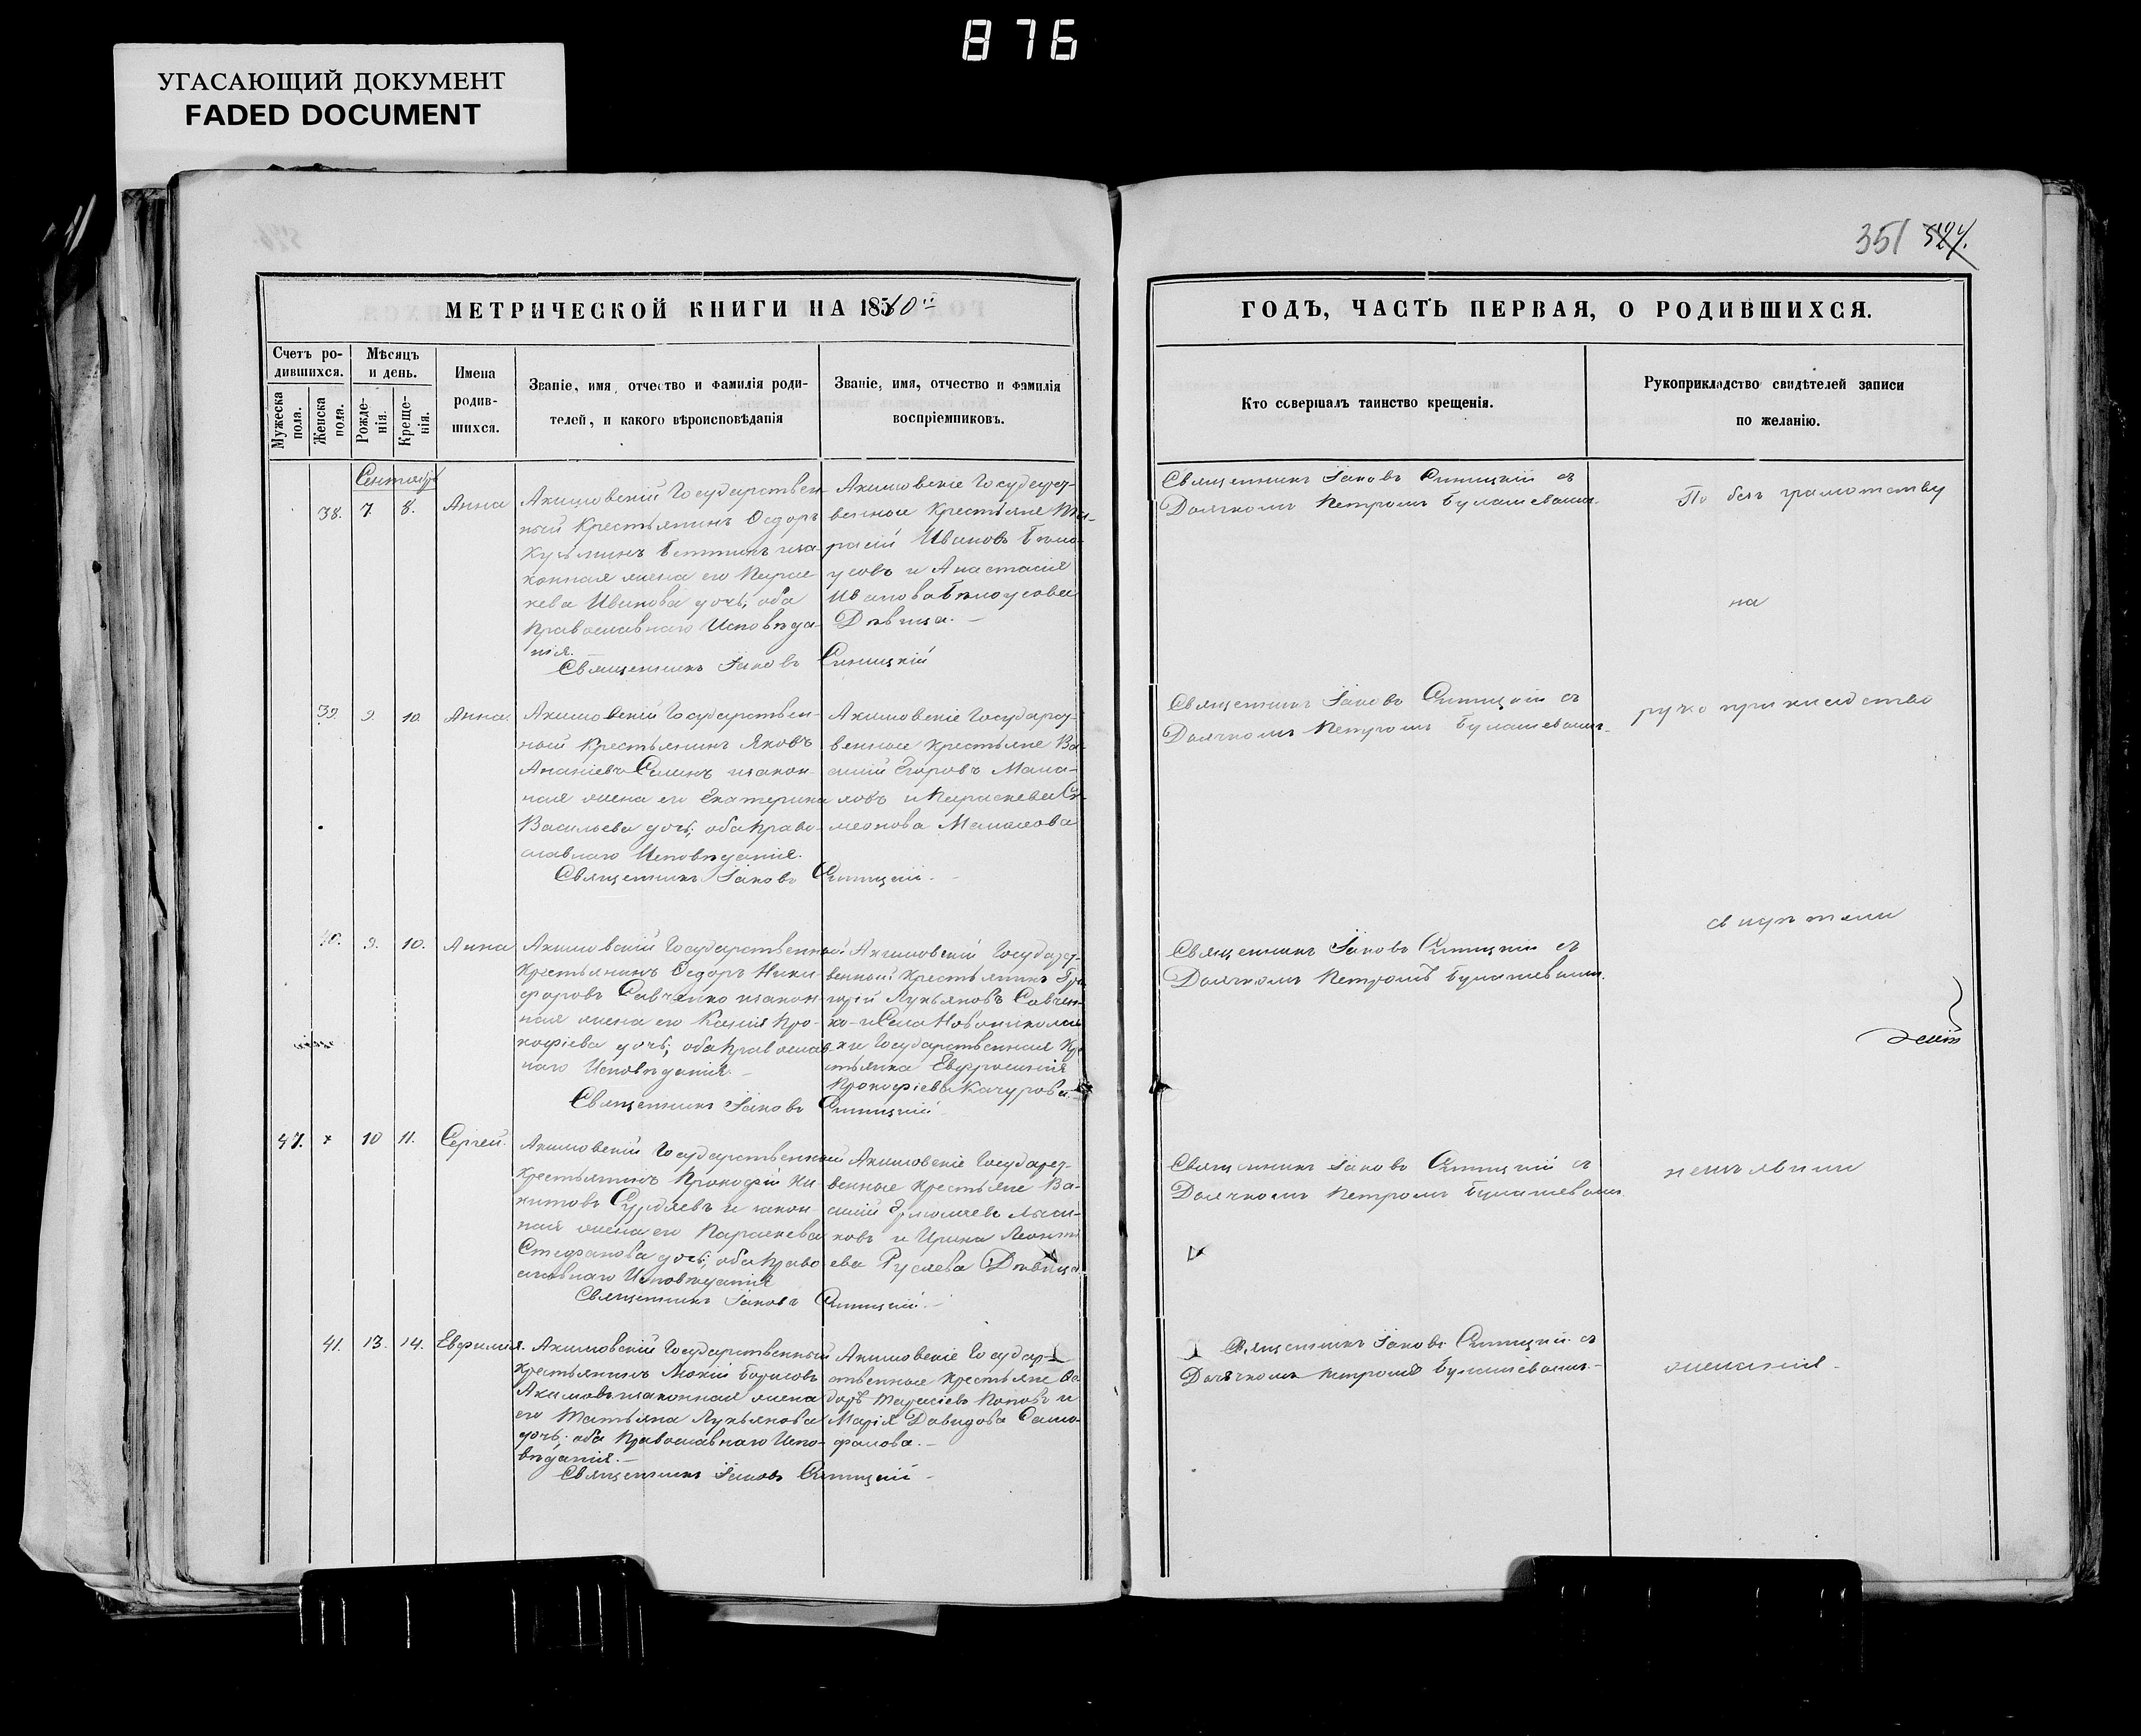 876
УГАСАЮЩИЙ ДОКУМЕНТ
FADED DOCUMENT
351 527.
МЕТРИЧЕСКОЙ КНИГИ НА 1860й
ГОДЪ, ЧАСТЬ ПЕРВАЯ, О РОДИВШИХСЯ.
Счетъ ро-
дившихся.
Мужеска
пола.
Женска
пола.
Мѣсяцъ
и день.
Рожде-
нія.
Креще-
нія.
Имена
родив-
шихся.
Званіе, имя, отчество и фамилія роди-
телей, и какого вѣроисповѣданія
Званіе, имя, отчество и фамилія
воспріемниковъ.
Кто совершалъ таинство крещенія.
Рукоприкладство свидѣтелей записи
по желанію.
Сентябрь
38. 7. 8. Анна
Акимовскій Государствен-
ный Крестьянинъ Ѳедоръ
Кузьминъ и за-
конная жена его Парас-
кева Иванова дочь; оба
Православнаго Исповѣда-
нія.
Священникъ Іаковъ Синицкій
Акимовскіе Государст-
венные Крестьяне Та-
расій Ивановъ Бѣло-
усовъ и Анастасія
Иванова Бѣлоусова
Дѣвица.
Священникъ Іаковъ Синицкій съ
Дьячкомъ Петромъ Булашевымъ.
По безграмотству
на
39. 9. 10. Анна.
Акимовскій Государствен-
ный Крестьянинъ Яковъ
Ананіевъ и закон-
ная жена его Екатерина
Васильева дочь; оба Право-
славнаго Исповѣданія.
Священникъ Іаковъ Синицкій.
Акимовскіе Государст-
венные крестьяне Ва-
силій Егоровъ
и Параскева Си-
меонова
Священникъ Іаковъ Синицкій съ
Дьячкомъ Петромъ Булашевымъ.
рукоприкладство
40. 9. 10. Анна
Акимовскій Государственный
Крестьянинъ Ѳедоръ Ники-
форовъ Савченко и закон-
ная жена его Ксенія Про-
кофіева дочь; оба Православ-
наго Исповѣданія.
Священникъ Іаковъ Синицкій
Акимовскій Государст-
венный Крестьянинъ Гри-
горій Лукьяновъ Савчен-
ко и Села Новониколаев-
ки Государственная Кре-
стьянка Евфросинія
Прокофіева Качурова.
Священникъ Іаковъ Синицкій съ
Дьячкомъ Петромъ Булашевымъ.
свидѣтели
47. 10 11. Сергѣй.
Акимовскій Государственный
Крестьянинъ Прокофій Ни-
китовъ и закон-
ная жена его Параскева
Стефанова дочь; оба Право-
славнаго Исповѣданія
Священникъ Іаковъ Синицкій.
Акимовскіе Государст-
венные крестьяне Ва-
силій
и Ирина Леонті-
ева Дѣвица.
Священникъ Іаковъ Синицкій съ
Дьячкомъ Петромъ Булашевымъ.
неизъявили
41. 13. 14. Евфимія.
Акимовскій Государственный
Крестьянинъ Мокій Борисовъ
Акимовъ и законная жена
его Татьяна Лукьянова
дочь; оба Православнаго Испо-
вѣданія.
Священникъ Іаковъ Синицкій
Акимовскіе Государ-
ственные крестьяне Ѳе-
доръ Тарасіевъ Поповъ и
Марія Давидова Само-
фалова.
Священникъ Іаковъ Синицкій съ
Дьячкомъ Петромъ Булашевымъ.
желанія.